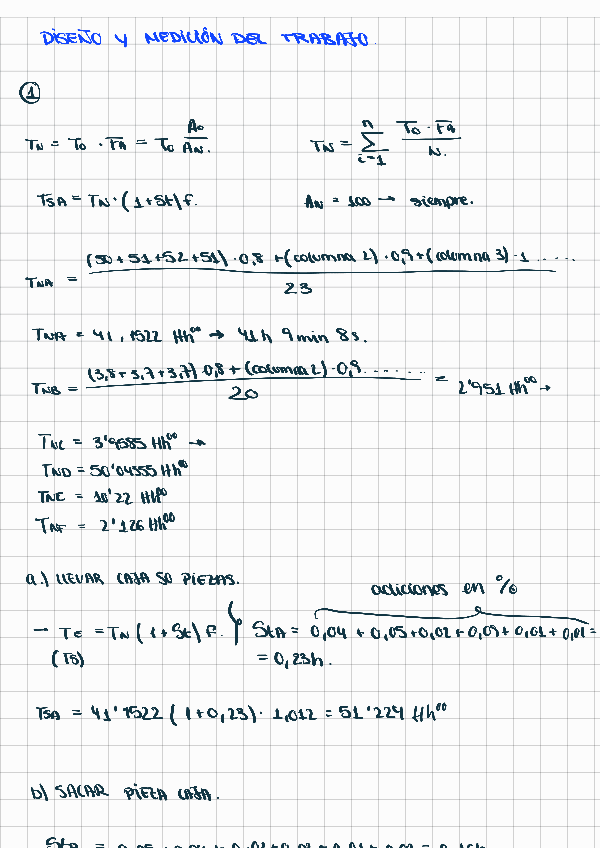 DISEÑO Y MEDICIÓN DEL TRABAJO.
1
TN = TO · FA = TO AO / AN.
TN = n Σ i=1 TO · FA / N.
TSA = TN · (1+St) f.
AN = 100 → siempre.
TNA = (50+51+52+51) · 0,8 + (columna 2) · 0,9 + (columna 3) · 1 ..... / 23
TNA = 41,1522 Hh⁰⁰ → 41h 9min 8s.
TNB = (3,8+3,7+3,7) · 0,8 + (columna 2) · 0,9 ....... / 20 = 2'951 Hh⁰⁰ →
TNC = 3'9585 Hh⁰⁰ →
TND = 50'04355 Hh⁰⁰
TNE = 10'22 Hh⁰⁰
TNF = 2'126 Hh⁰⁰
a.) LLEVAR CAJA 50 PIEZAS.
adiciones en %
→ TE = TN (1+St) f. } StA = 0,04 + 0,05 + 0,02 + 0,09 + 0,01 + 0,01 =
(TS) = 0,23h.
TSA = 41'1522 (1+0,23) · 1,012 = 51'224 Hh⁰⁰
b) SACAR PIEZA CAJA.